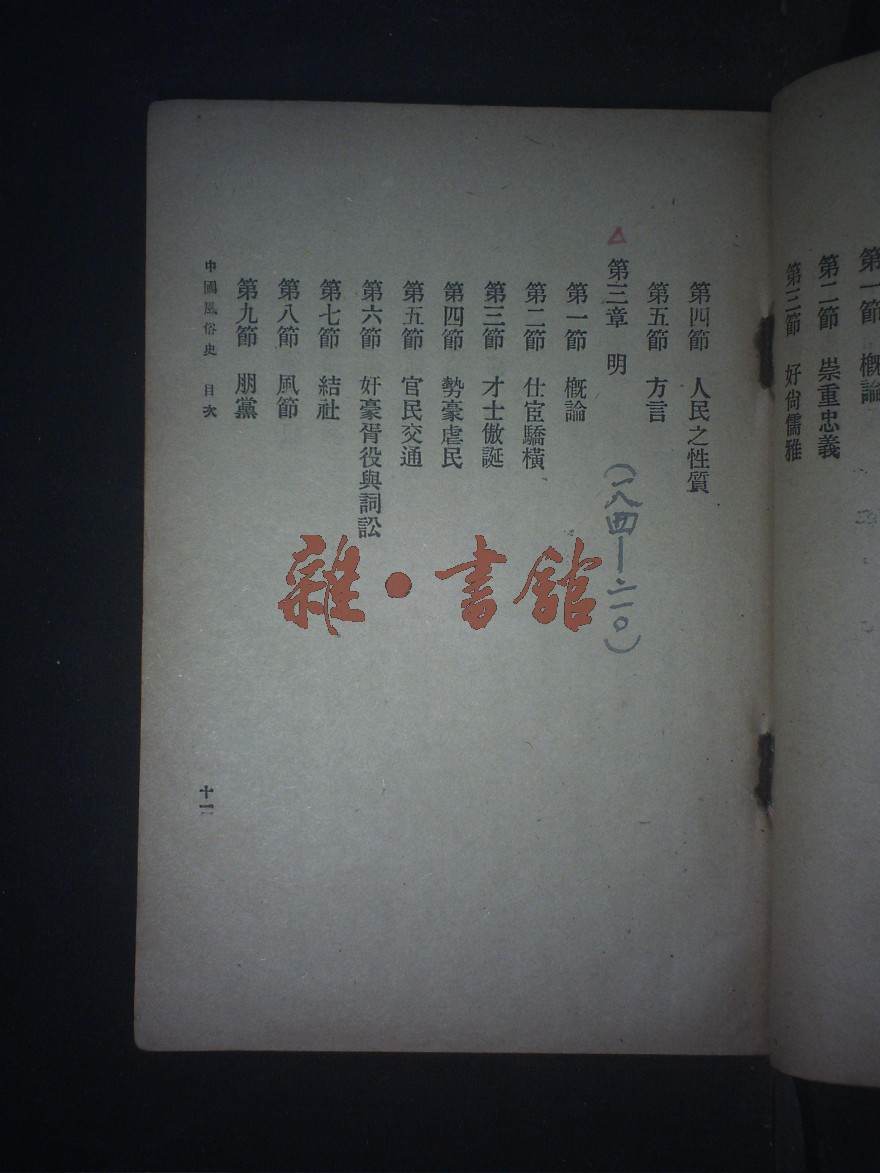 第一節　槪論
第二節　崇重忠義
第三節　好尙儒雅
第四節　人民之性質
第五節　方言
△第三章　明　（一八四—二一〇）
第一節　槪論
第二節　仕宦驕橫
第三節　才士傲誕
第四節　勢豪虐民
第五節　官民交通
第六節　奸豪胥役與詞訟
第七節　結社
第八節　風節
第九節　朋黨
中國風俗史　目次
雜·書館